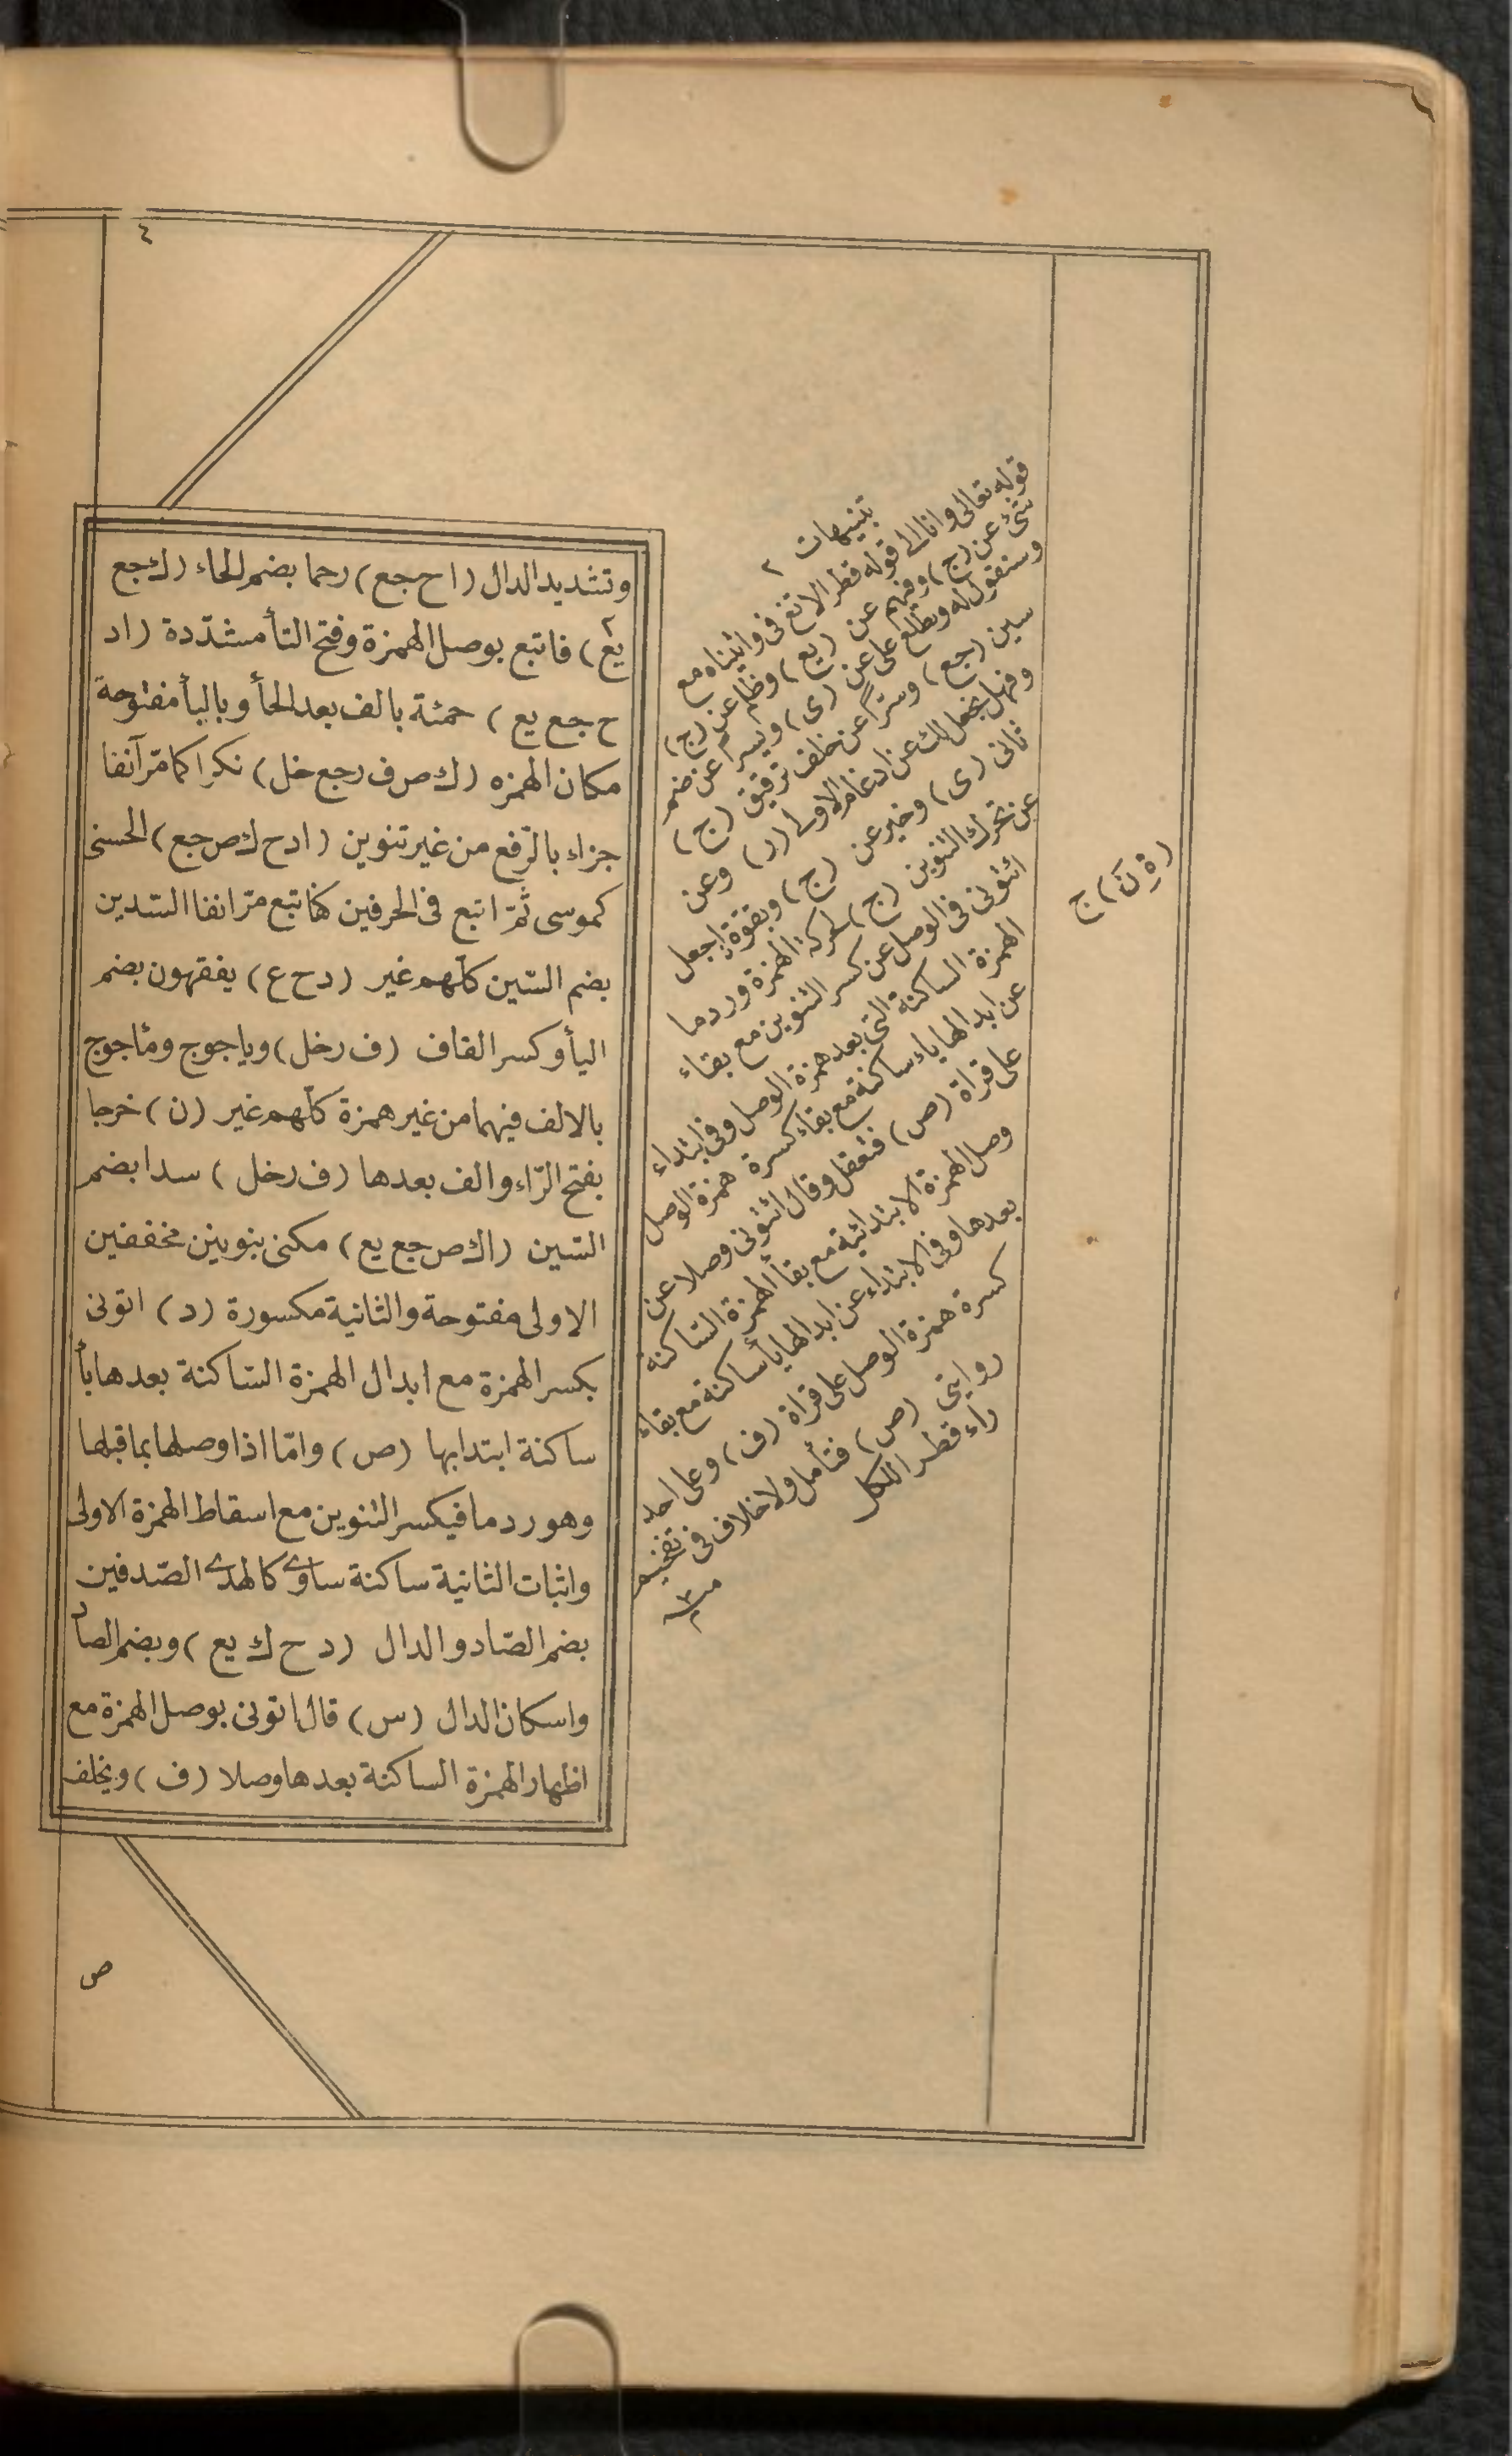 ٤
وتشديد الدال (ا ح جع) رحما بضم الحاء (ك جع
يع) فاتبع بوصل الهمزة وفتح التأ مشدّدة (ا د
ح جع يع) حمئة بالف بعد الحأ وباليأ مفتوحة
مكان الهمزه (ك ص ف ر جع خل) نكرا كما مرّ آنفا
جزاء بالرّفع من غير تنوين (ا د ح ك ص جع) الحسنى
كموسى ثمّ اتبع فى الحرفين كفاتبع مرّ انفا السّدين
بضم السّين كلّهم غير (د ح ع) يفقهون بضم
اليأ وكسر القاف (ف ر خل) وياجوج ومأجوج
بالالف فيهما من غير همزة كلّهم غير (ن) خرجا
بفتح الرّاء والف بعدها (ف ر خل) سدا بضم
السّين (ا ك ص جع يع) مكنى بنونين مخففين
الاولى مفتوحة والثانية مكسورة (د) اتونى
بكسر الهمزة مع ابدال الهمزة السّاكنة بعدها يأ
ساكنة ابتدا بها (ص) وامّا اذا وصلها بما قبلها
وهو ردما فيكسر التنوين مع اسقاط الهمزة الاولى
واثبات الثانية ساكنة ساوى كالهدى الصّدفين
بضم الصّاد والدال (د ح ك يع) وبضم الصاد
واسكان الدال (س) قال اتونى بوصل الهمزة مع
اظهار الهمزة الساكنة بعدها وصلا (ف) وبخلف
ص
تنبيهات ٢
قوله تعالى وانا الى قوله قطر الاتغ فى واتيناه مع
شئ عن (ج) وفيهم عن (يع) وظلم عن (ج)
وسنقول له وتطلع على عن (ى) ويسرا عن ضم
سين (جع) وسترًا عن خلف ترقيق (ج)
وفهل نجعل لك عن ادغام الاولى (ر) وعن
ثانى (ى) وخير عن (ج) وبقوّة اجعل
عن تحرك التنوين (ج) لحركة الهمزة وردما
ائتونى فى الوصل عن كسر التنوين مع بقاء
الهمزة الساكنة التى بعد همزة الوصل وفى ابتداء
عن ابدالها ياء ساكنة مع بقاء كسرة همزة الوصل
على قراة (ص) فتعقل وقال ائتونى وصلا عن
وصل الهمزة الابتدائية مع بقأ الهمزة السّاكنة
بعدها وفى الابتداء عن ابدالها يأ ساكنة مع بقاء
كسرة همزة الوصل على قراة (ف) وعلى احد
روايتى (ص) فتأمل ولا خلاف فى تفخيم
راء قطر الكل